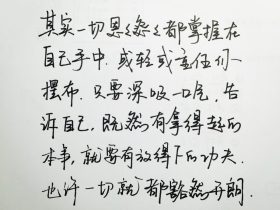 其实一切恩恩怨怨都掌握在
自己手中，或轻或重任们一
摆布，只要深吸一口气，告
诉自己，既然有拿得起的
本事，就要有放得下的功夫，
也许一切就都豁然开朗．